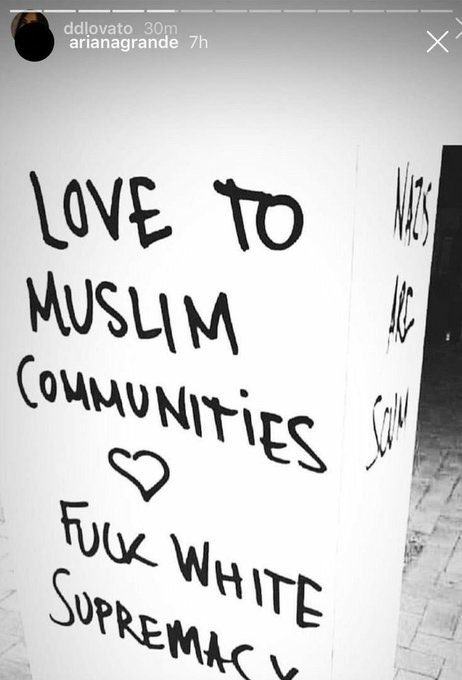 ddlovato 30m
arianagrande 7h
LOVE TO
MUSLIM
COMMUNITIES
FUCK WHITE
SUPREMACY
NAZIS
ARE
SCUM